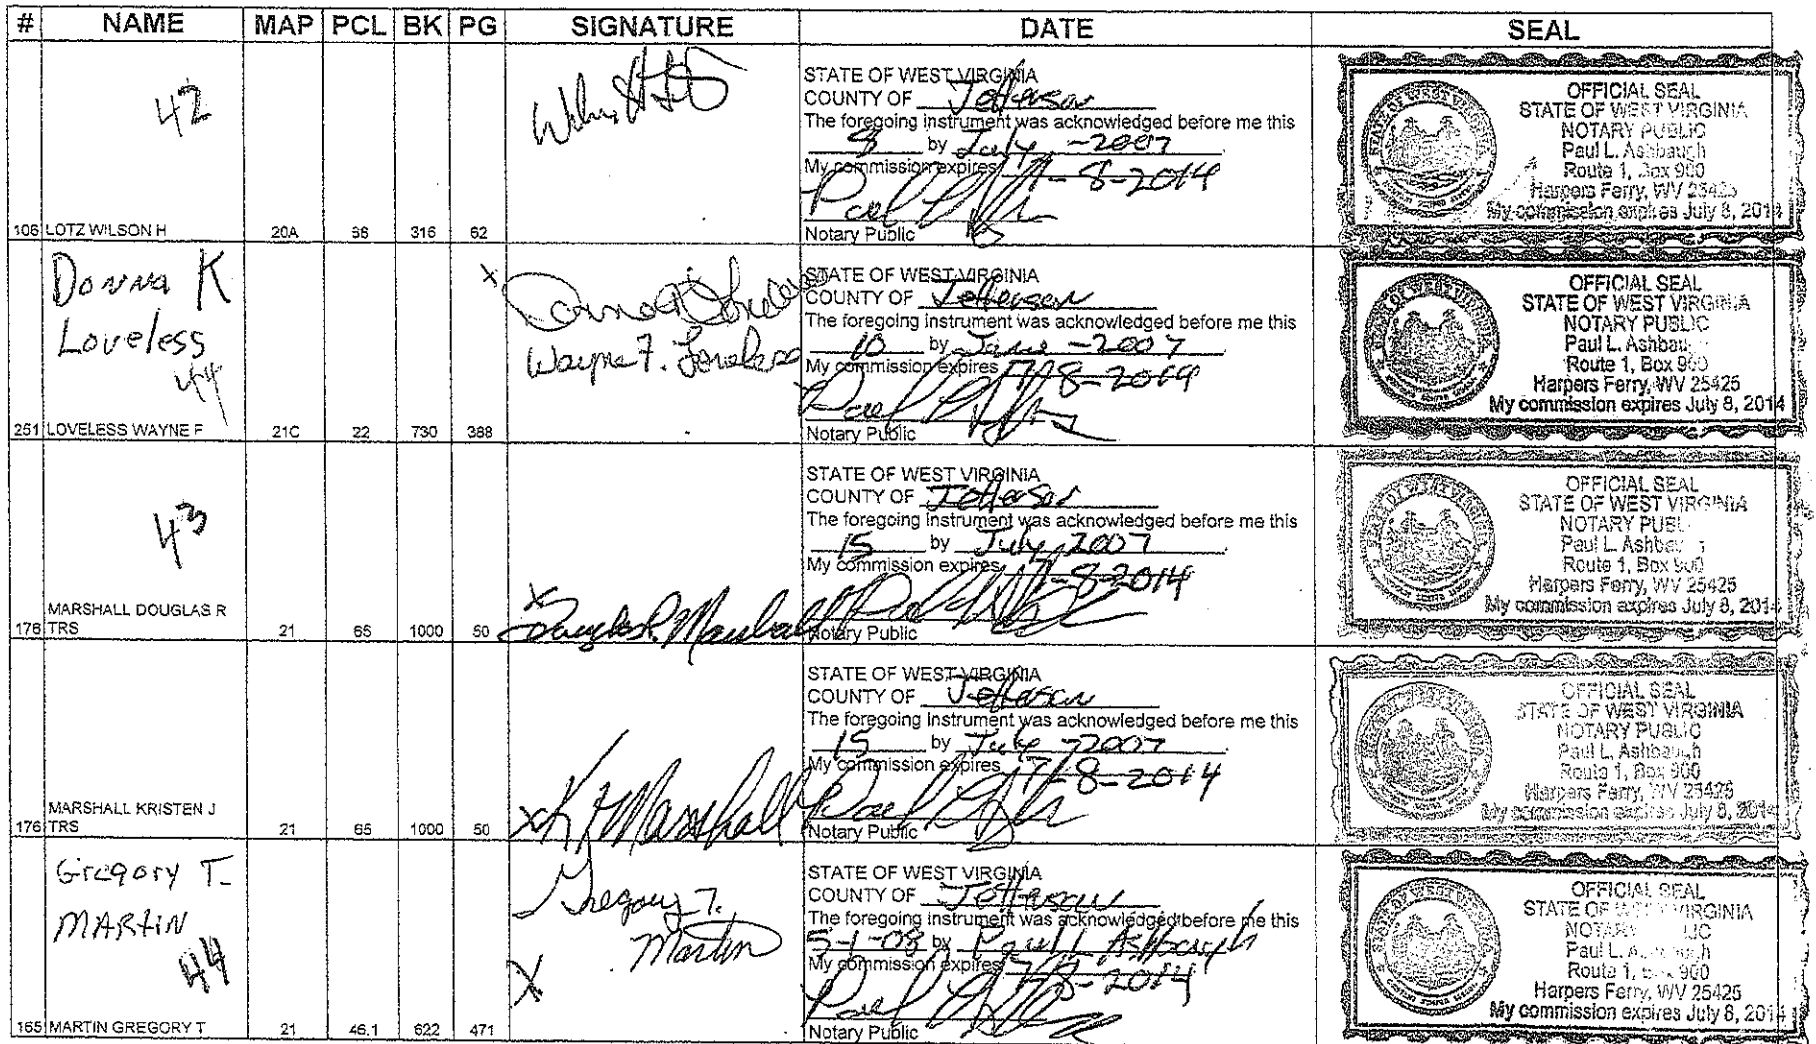 # NAME MAP PCL BK PG SIGNATURE DATE SEAL
42
106 LOTZ WILSON H 20A 56 316 62
STATE OF WEST VIRGINIA
COUNTY OF Jefferson
The foregoing instrument was acknowledged before me this
8 by July -2007
My commission expires 7-8-2014
Notary Public
OFFICIAL SEAL
STATE OF WEST VIRGINIA
NOTARY PUBLIC
Paul L. Ashbaugh
Route 1, Box 900
Harpers Ferry, WV 25425
My commission expires July 8, 2014
Donna K
Loveless
44
251 LOVELESS WAYNE F 21C 22 730 388
X
Donna K Loveless
Wayne F. Loveless
STATE OF WEST VIRGINIA
COUNTY OF Jefferson
The foregoing instrument was acknowledged before me this
10 by June -2007
My commission expires 7-8-2014
Notary Public
OFFICIAL SEAL
STATE OF WEST VIRGINIA
NOTARY PUBLIC
Paul L. Ashbau
Route 1, Box 900
Harpers Ferry, WV 25425
My commission expires July 8, 2014
43
MARSHALL DOUGLAS R
176 TRS 21 65 1000 50
X
Douglas R. Marshall
STATE OF WEST VIRGINIA
COUNTY OF Jefferson
The foregoing instrument was acknowledged before me this
15 by July 2007
My commission expires 7-8-2014
Notary Public
OFFICIAL SEAL
STATE OF WEST VIRGINIA
NOTARY PUBL
Paul L. Ashba
Route 1, Box 900
Harpers Ferry, WV 25425
My commission expires July 8, 2014
MARSHALL KRISTEN J
176 TRS 21 65 1000 50
X K J Marshall
STATE OF WEST VIRGINIA
COUNTY OF Jefferson
The foregoing instrument was acknowledged before me this
15 by July -2007
My commission expires 7-8-2014
Notary Public
OFFICIAL SEAL
STATE OF WEST VIRGINIA
NOTARY PUBLIC
Paul L. Ashbaugh
Route 1, Box 900
Harpers Ferry, WV 25425
My commission expires July 8, 2014
Gregory T.
MARTIN
44
165 MARTIN GREGORY T 21 46.1 622 471
Gregory T.
Martin
X
STATE OF WEST VIRGINIA
COUNTY OF Jefferson
The foregoing instrument was acknowledged before me this
5-1-08 by Paul L Ashbaugh
My commission expires 7-8-2014
Notary Public
OFFICIAL SEAL
STATE OF WEST VIRGINIA
Route 1, 900
Harpers Ferry, WV 25425
My commission expires July 8, 2014